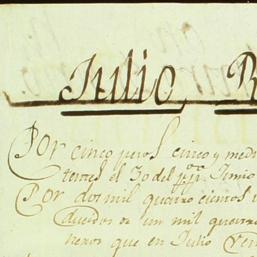 Julio, R
Por cinco pesos cinco y medi
teros el 30 de Junio
Por dos mil quatro cientos
un mil quatro
neros que en Julio